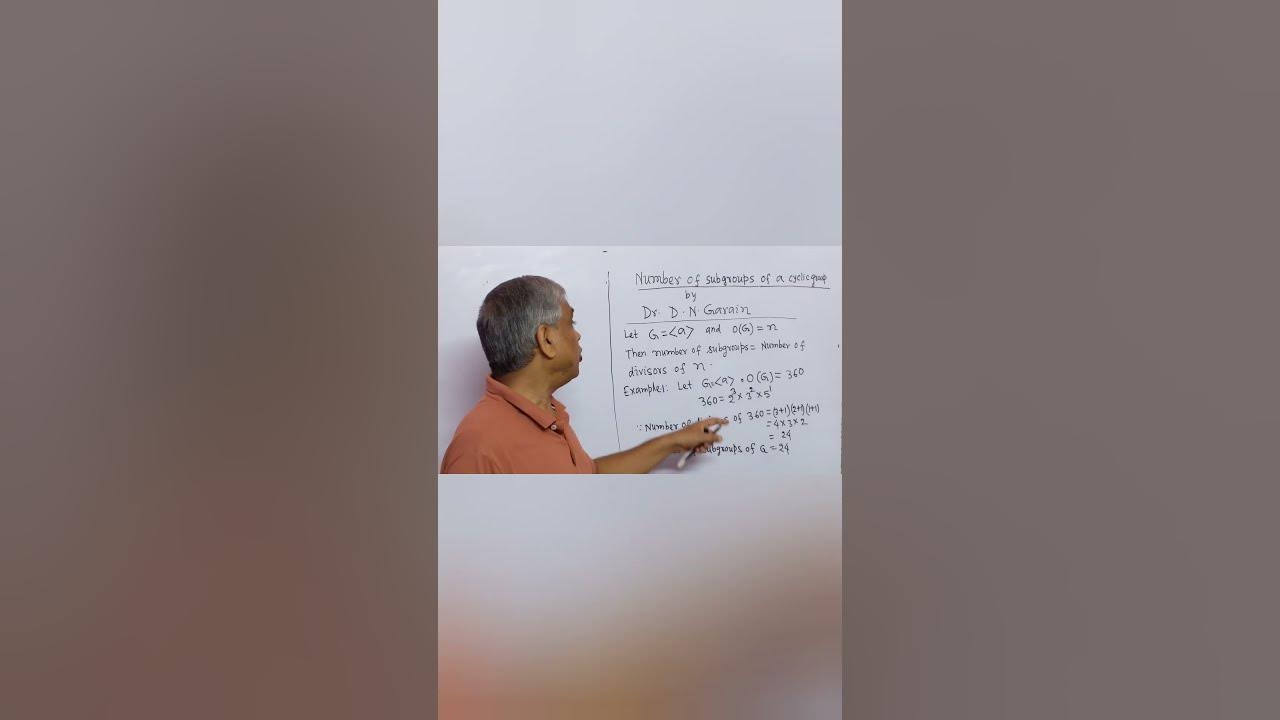 Number of subgroups of a cyclic group
by
Dr. D.N. Garain
Let G=<a> and O(G)=n
Then number of subgroups= Number of
divisors of n.
Example1: Let G=<a>, O(G)=360
360=2³×3²×5¹
∴ Number of divisors of 360=(3+1)(2+1)(1+1)
=4×3×2
= 24
subgroups of G=24